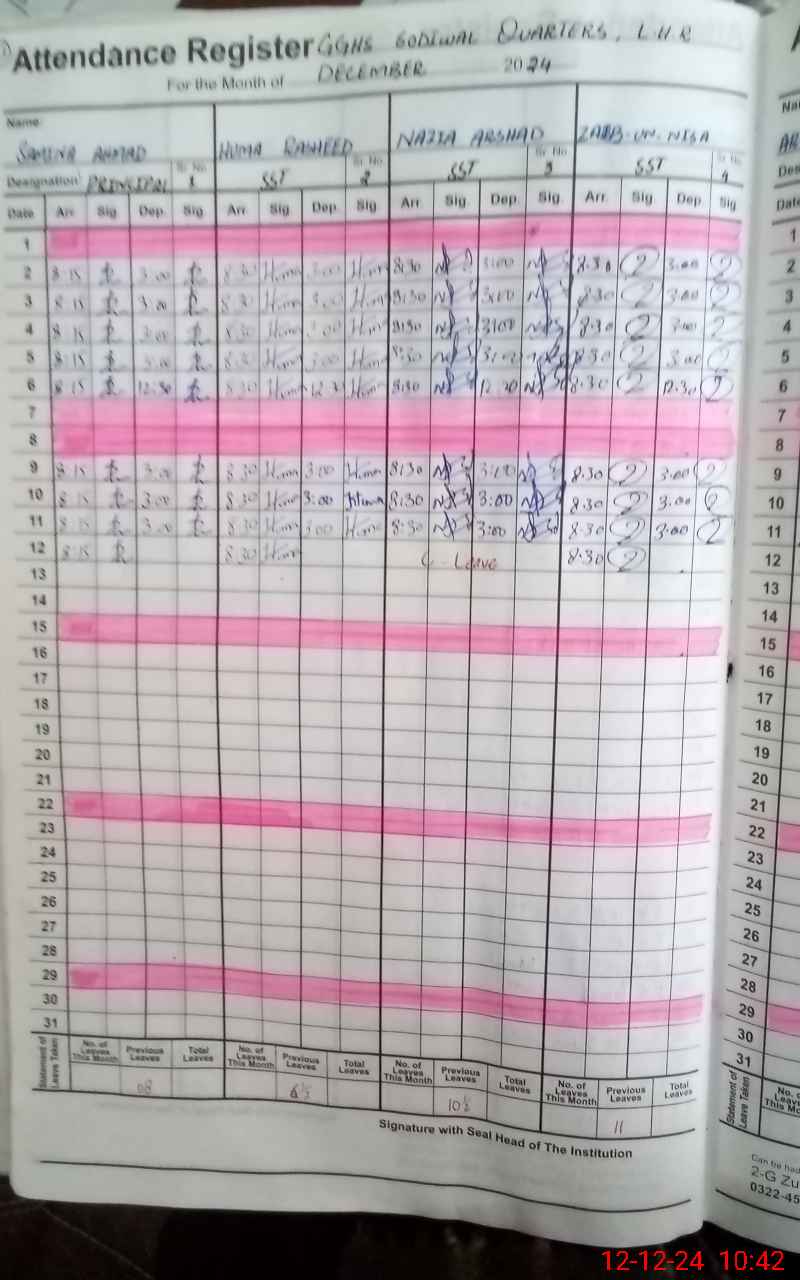 Attendance Register GGHS GODIWAL QUARTERS, L.H.R
For the Month of DECEMBER 2024
Name SAMINA AHMAD HUMA RASHEED NAZIA ARSHAD ZAIB-UN-NISA
Designation PRINCIPAL Sr. No. 1 SST Sr. No. 2 SST Sr. No. 3 SST Sr. No. 4
Date Arr. Sig. Dep. Sig. Arr. Sig. Dep. Sig. Arr. Sig. Dep. Sig. Arr. Sig. Dep. Sig.
1
2 8.15 3.00 8.30 Huma 3.00 Huma 8:30 3:00 8.30 3.00
3 8.15 3.00 8.30 Huma 3.00 Huma 8:30 3:00 8.30 3.00
4 8.15 3.00 8.30 Huma 3.00 Huma 8:30 3:00 8.30 3.00
5 8.15 3.00 8.30 Huma 3.00 Huma 8:30 3:00 8.30 3.00
6 8.15 12.30 8.30 Huma 12.30 Huma 8:30 12.30 8.30 12.30
7
8
9 8.15 3.00 8.30 Huma 3.00 Huma 8:30 3:00 8.30 3.00
10 8.15 3.00 8.30 Huma 3:00 Huma 8:30 3:00 8.30 3.00
11 8.15 3.00 8.30 Huma 3.00 Huma 8:30 3:00 8.30 3.00
12 8.15 8.30 Huma C. Leave 8.30
13
14
15
16
17
18
19
20
21
22
23
24
25
26
27
28
29
30
31
Statement of Leave Taken
No. of Leaves This Month Previous Leaves Total Leaves No. of Leaves This Month Previous Leaves Total Leaves No. of Leaves This Month Previous Leaves Total Leaves No. of Leaves This Month Previous Leaves Total Leaves
08 6½ 10½ 11
Signature with Seal Head of The Institution
Na
AR
Des
Date
1
2
3
4
5
6
7
8
9
10
11
12
13
14
15
16
17
18
19
20
21
22
23
24
25
26
27
28
29
30
31
Statement of Leave Taken
No. of
Leaves
This Mo
Can be had
2-G Zu
0322-45
12-12-24 10:42